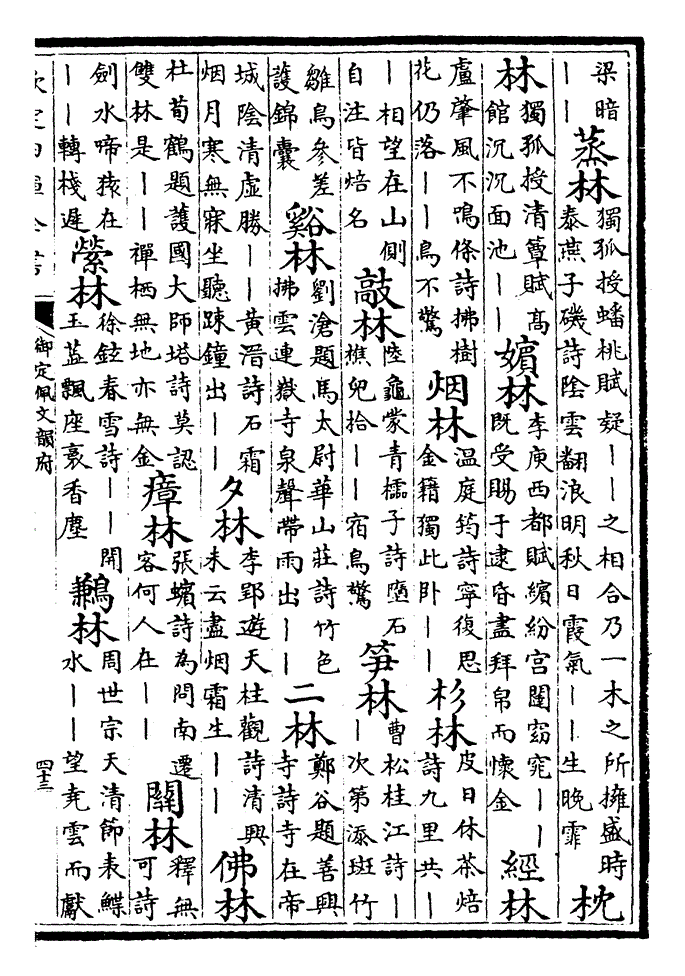 梁暗
｜｜
蒸林
獨孤授蟠桃賦疑｜｜之相合乃一木之所擁盛時
泰燕子磯詩陰雲翻浪明秋日霞氣｜｜生晚霏
枕
林
獨孤授清簟賦高
館沉沉面池｜｜
嬪林
李庾西都賦繽紛宮闈窈窕｜｜
既受賜于逮昏盡拜帛而懷金
經林
盧肇風不鳴條詩拂樹
花仍落｜｜鳥不驚
烟林
温庭筠詩寧復思
金籍獨此卧｜｜
杉林
皮日休茶焙
詩九里共｜
｜相望在山側
自注皆焙名
敲林
陸龜蒙青櫺子詩墮石
樵兒拾｜｜宿鳥驚
笋林
曹松桂江詩｜
｜次第添斑竹
雛鳥參差
護錦囊
谿林
劉滄題馬太尉華山莊詩竹色
拂雲連嶽寺泉聲帶雨出｜｜
二林
鄭谷題善興
寺詩寺在帝
城陰清虛勝｜｜黄溍詩石霜
烟月寒無寐坐聽踈鐘出｜｜
夕林
李郢遊天柱觀詩清興
未云盡烟霜生｜｜
佛林
杜荀鶴題護國大師塔詩莫認
雙林是｜｜禪栖無地亦無金
瘴林
張蠙詩為問南遷
客何人在｜｜
關林
釋無
可詩
劍水啼猿在
｜｜轉棧遲
縈林
徐鉉春雪詩｜｜開
玉蕋飄座裛香塵
鶼林
周世宗天清節表鰈
水｜｜望堯雲而獻
欽定四庫全書
御定佩文韻府
四十三